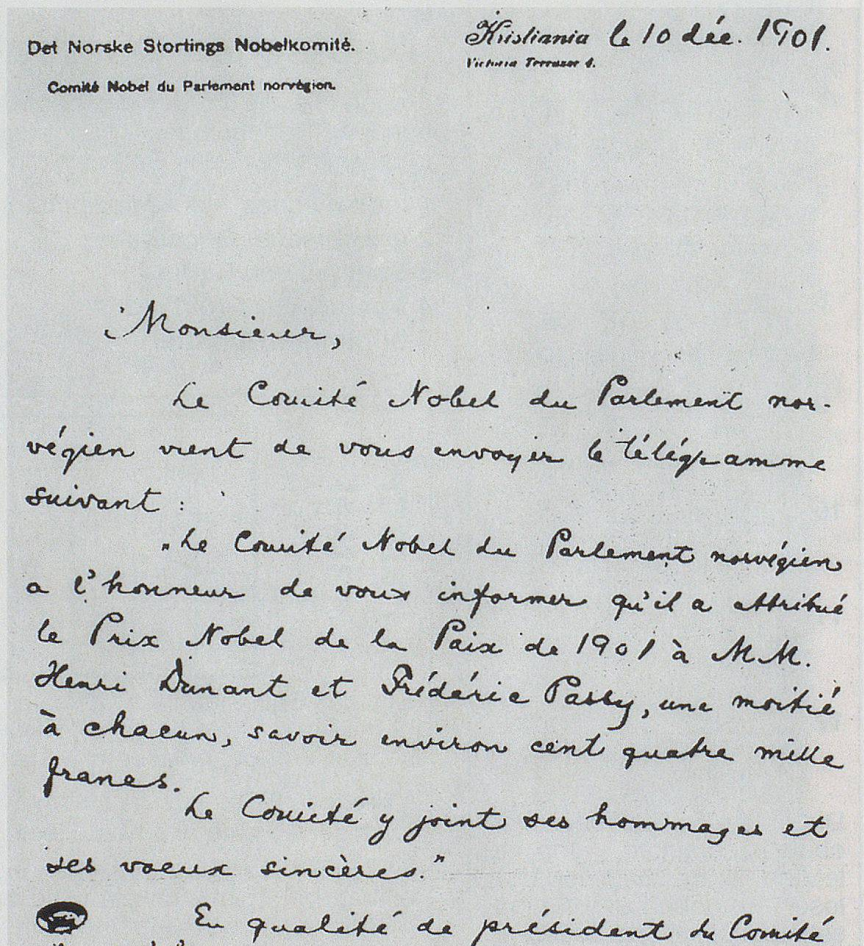 Det Norske Stortings Nobelkomité.
Comité Nobel du Parlement norvégien.
Kristiania le 10 déc. 1901.
Victoria Terrasse 4.
Monsieur,
Le Comité Nobel du Parlement nor-
végien vient de vous envoyer le télégramme
suivant :
„Le Comité Nobel du Parlement norvégien
a l'honneur de vous informer qu'il a attribué
le Prix Nobel de la Paix de 1901 à MM.
Henri Dunant et Frédéric Passy, une moitié
à chacun, savoir environ cent quatre mille
francs.
Le Comité y joint ses hommages et
ses voeux sincères."
En qualité de président du Comité